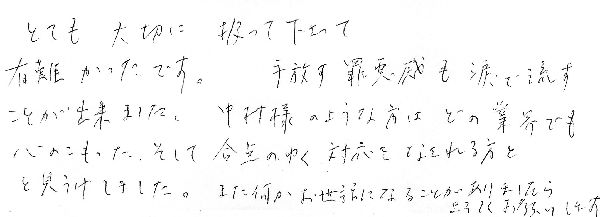 とても 大切に 扱って下さって
有難かったです。 手放す罪悪感も涙で流す
ことが出来ました。 中村様のような方はどの業界でも
心のこもった、そして合点のゆく対応をなされる方と
と見うけしました。 また何かお世話になることがありましたら
よろしくお願いします